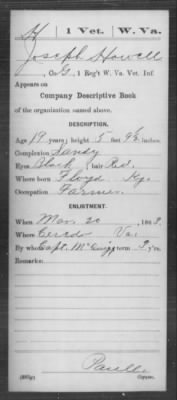 H 1 Vet. W. Va.
Joseph Howell
, Co. G, 1 Reg't W. Va. Vet. Inf.
Appears on
Company Descriptive Book
of the organization named above.
DESCRIPTION.
Age 19 years; height 5 feet 9½ inches.
Complexion Sandy
Eyes Black; hair Red.
Where born Floyd Ky.
Occupation Farmer.
ENLISTMENT.
When Mar. 20, 1863.
Where Ceredo Va.
By whom Capt. McQuigg term 3 y'rs.
Remarks:
Copyist.